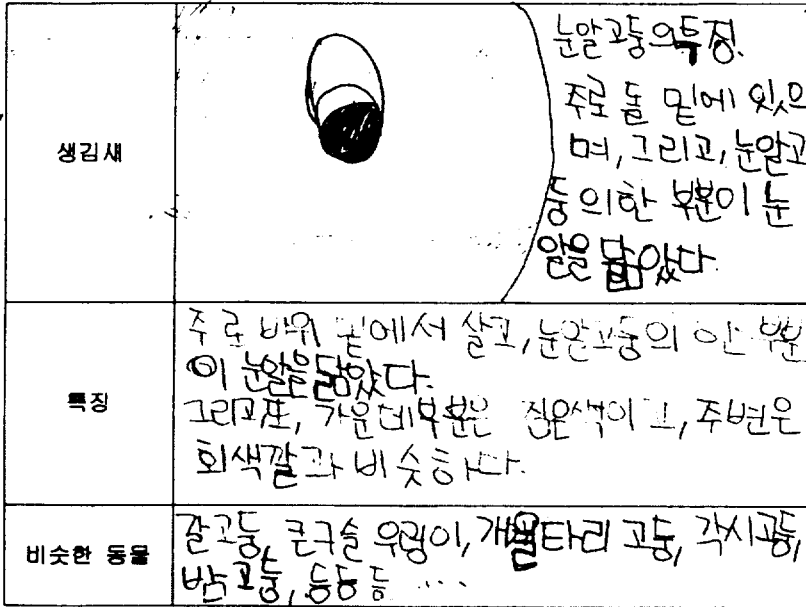 생김새
눈알고둥의특징.
주로 돌 밑에 있으
며,그리고,눈알고
둥의한 부분이 눈
알을 닮았다.
특징
주로 바위 밑에서 살고,눈알고둥의 한 부분
이 눈알을닮았다.
그리고또, 가운데부분은 검은색이고,주변은
회색깔과 비슷하다.
비슷한 동물
갈고둥, 큰구슬 우렁이,개울타리 고둥, 각시고둥,
밤고둥,등등등 ...